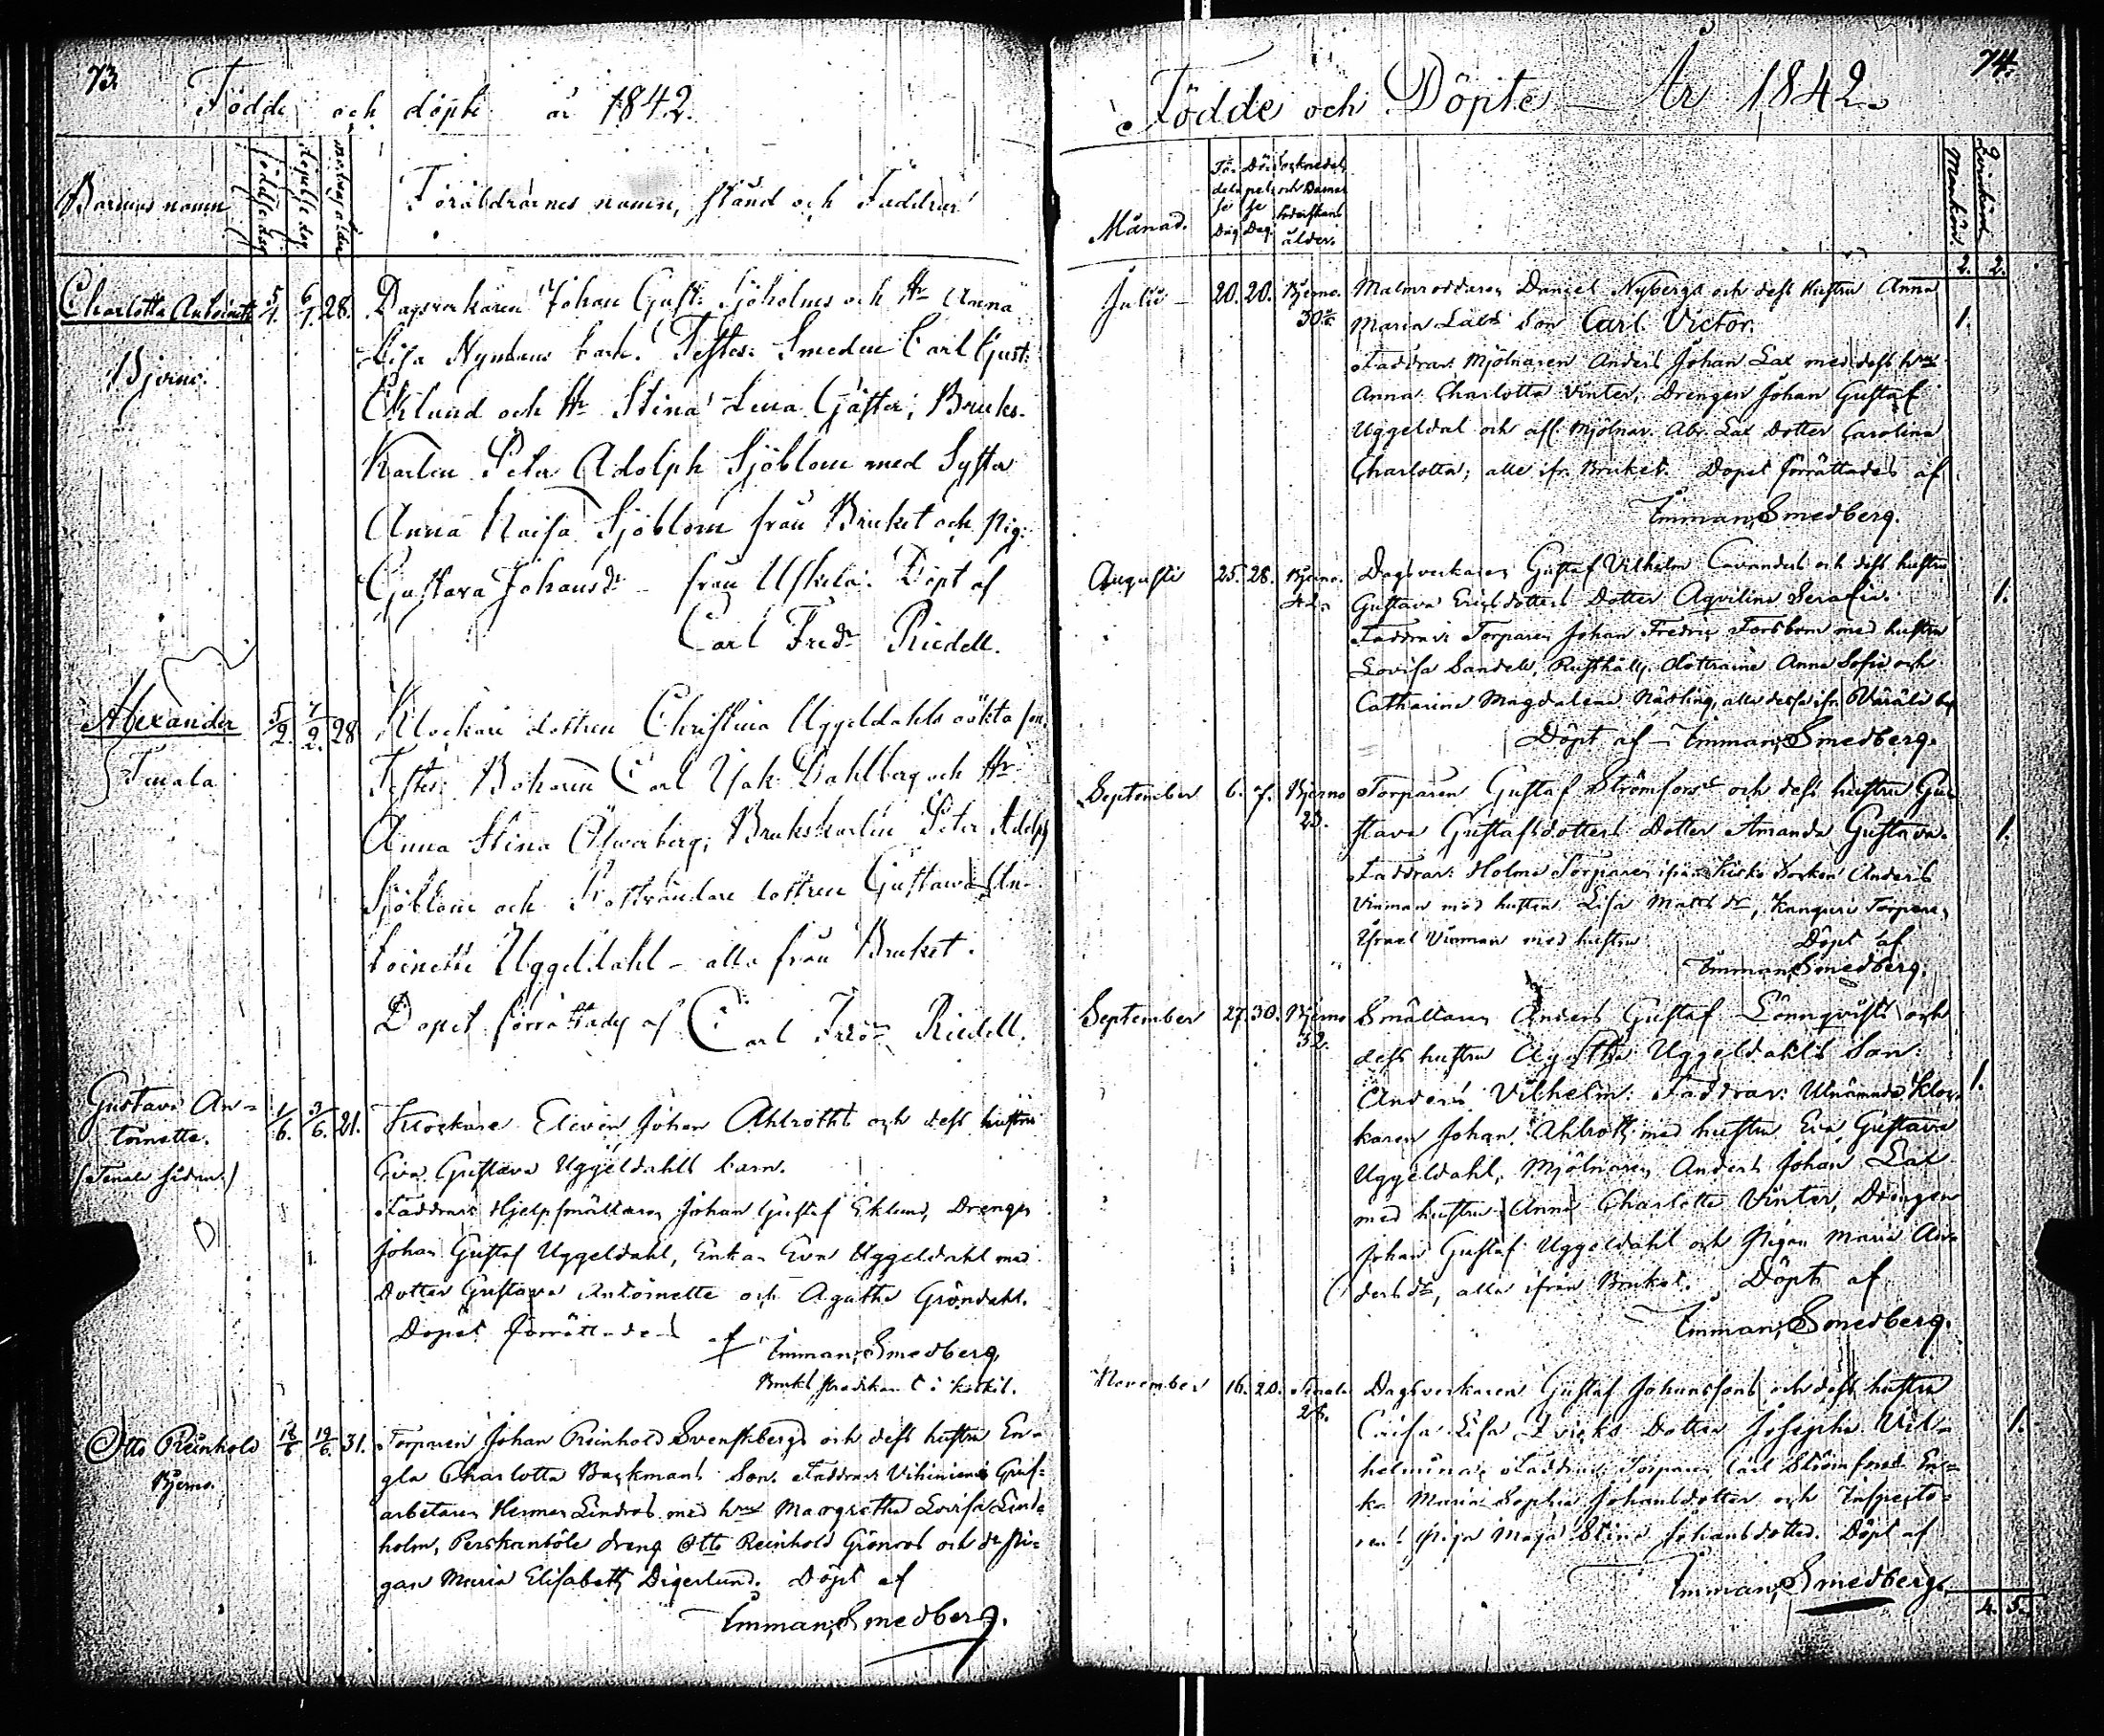 73.
Födde och döpte år 1842.
Barnens namn
Födelse dag
Döpelse dag
Modrens ålder
Föräldrarnes namn, stånd och Faddrar
Charlotta Antoinette 5/1. 6/1. 28.
Bjerno.
Dagsverkaren Johan Gust: Sjöholms och Hr Anna
Lisa Nymans barn. Testes: Smeden Carl Gust:
Eklund och Hr Stina Lena Gäster; Bruks-
Karlen Peter Adolph Sjöblom med Syster
Anna Kaisa Sjöblom från Bruket och Pig:
Gustava Johansdr från Uskela. Döpt af
Carl Fredr Riedell.
Alexander 5/2. 7/2. 28
Tenala
Klockare dottren Christina Uggeldahls oäkta son.
Testes: Bokaren Carl Isak Dahlberg och Hr
Anna Stina Öfverberg; Brukskarlen Peter Adolph
Sjöblom och dottren Gustawa An-
toinette Uggeldahl – alla från Bruket.
Dopet förrättades af Carl Fredr Riedell.
Gustava An-
toinette.
(Tenala sidan.)
1/6. 3/6. 21.
Klockare Eleven Johan Ahlroths och dess hustru
Eva Gustava Uggeldahls barn.
Faddrar: Hjelpsmältaren Johan Gustaf Eklund, Drengen
Johan Gustaf Uggeldahl, Enkan Eva Uggeldahl med
Dotter Gustava Antoinette och Agatha Gröndahl.
Dopet förrättades af Imman. Smedberg,
Bruks predikant i Koskis.
Otto Reinhold 18/6 19/6. 31.
Bjerno.
Torparen Johan Reinhold Svenskbergs och dess hustru En-
gla Charlotta Backmans Son. Faddrar: Vihiniemi Gruf-
arbetaren Herman Lindros med hru Margretha Lovisa Lind-
holm, Perskantöle dreng Otto Reinhold Grönros och do pi-
gan Maria Elisabeth Digerlund. Döpt af
Imman. Smedberg.
74.
Födde och Döpte – År 1842.
Månad.
Fö-
delse
Dag
Dö-
pelse
Dag.
Socknedel,
och Barna
föderskans
ålder.
Mankön
Qvinkön
2. 2.
Julii – 20. 20. Bjerno.
30
Malmroddaren Daniel Nybergs och dess hustru Anna
Maria Lax's Son Carl Victor. 1.
Faddrar: Mjölnaren Anders Johan Lax med dess hru
Anna Charlotta Vinter, Drengen Johan Gustaf
Uggeldal och afl. Mjölnar. Abr. Lax Dotter Carolina
Charlotta; alle ifr. Bruket. Dopet förrättades af
Imman. Smedberg.
Augusti 25. 28. Bjerno.
Dagsverkaren Gustaf Vilhelm Cavanders och dess hustru
Gustava Ericsdotters Dotter Aqvilina Serafia. 1.
Faddrar: Torparen Johan Fredric Forsbom med hustru
Lovisa Sandell, Rusthålls döttrarne Anna Sofia och
Catharina Magdalena Närling, alla dessa ifr. by
Döpt af – Imman. Smedberg.
September 6. 7. Bjerno
23.
Torparen Gustaf Strömfors och dess hustru Gu-
stava Gustafsdotters Dotter Amanda Gustava. 1.
Faddrar: Holma Torparen ifrån Kisko Socken Anders
Vinman med hustru Lisa Matsdr, Kanguri Torparen
Israel Vinman med hustru Döpt af
Imman. Smedberg.
September 27. 30. Bjerno
32.
Smältaren Anders Gustaf Lönnqvists och
dess hustru Agatha Uggeldahls Son:
Anders Vilhelm: Faddrar: Utnämnde Kloc- 1.
karen Johan Ahlroth med hustru Eva Gustava
Uggeldahl, Mjölnaren Anders Johan Lax
med hustru Anna Charlotta Vinter, Drengen
Johan Gustaf Uggeldahl och Pigan Maria An-
dersdr, alla ifrån Bruket. Döpt af
Imman. Smedberg.
November 16. 20. Tenala
28.
Dagsverkaren Gustaf Johanssons och dess hustru
Caisa Lisa Dotter Josepha Vil- 1.
helmina; Faddrar: Torparen Carl Strömfors En-
ka Maria Sophia Johansdotter och Inspecto-
rens Piga Maja Stina Johansdotter. Döpt af
Imman. Smedberg.
4. 5.